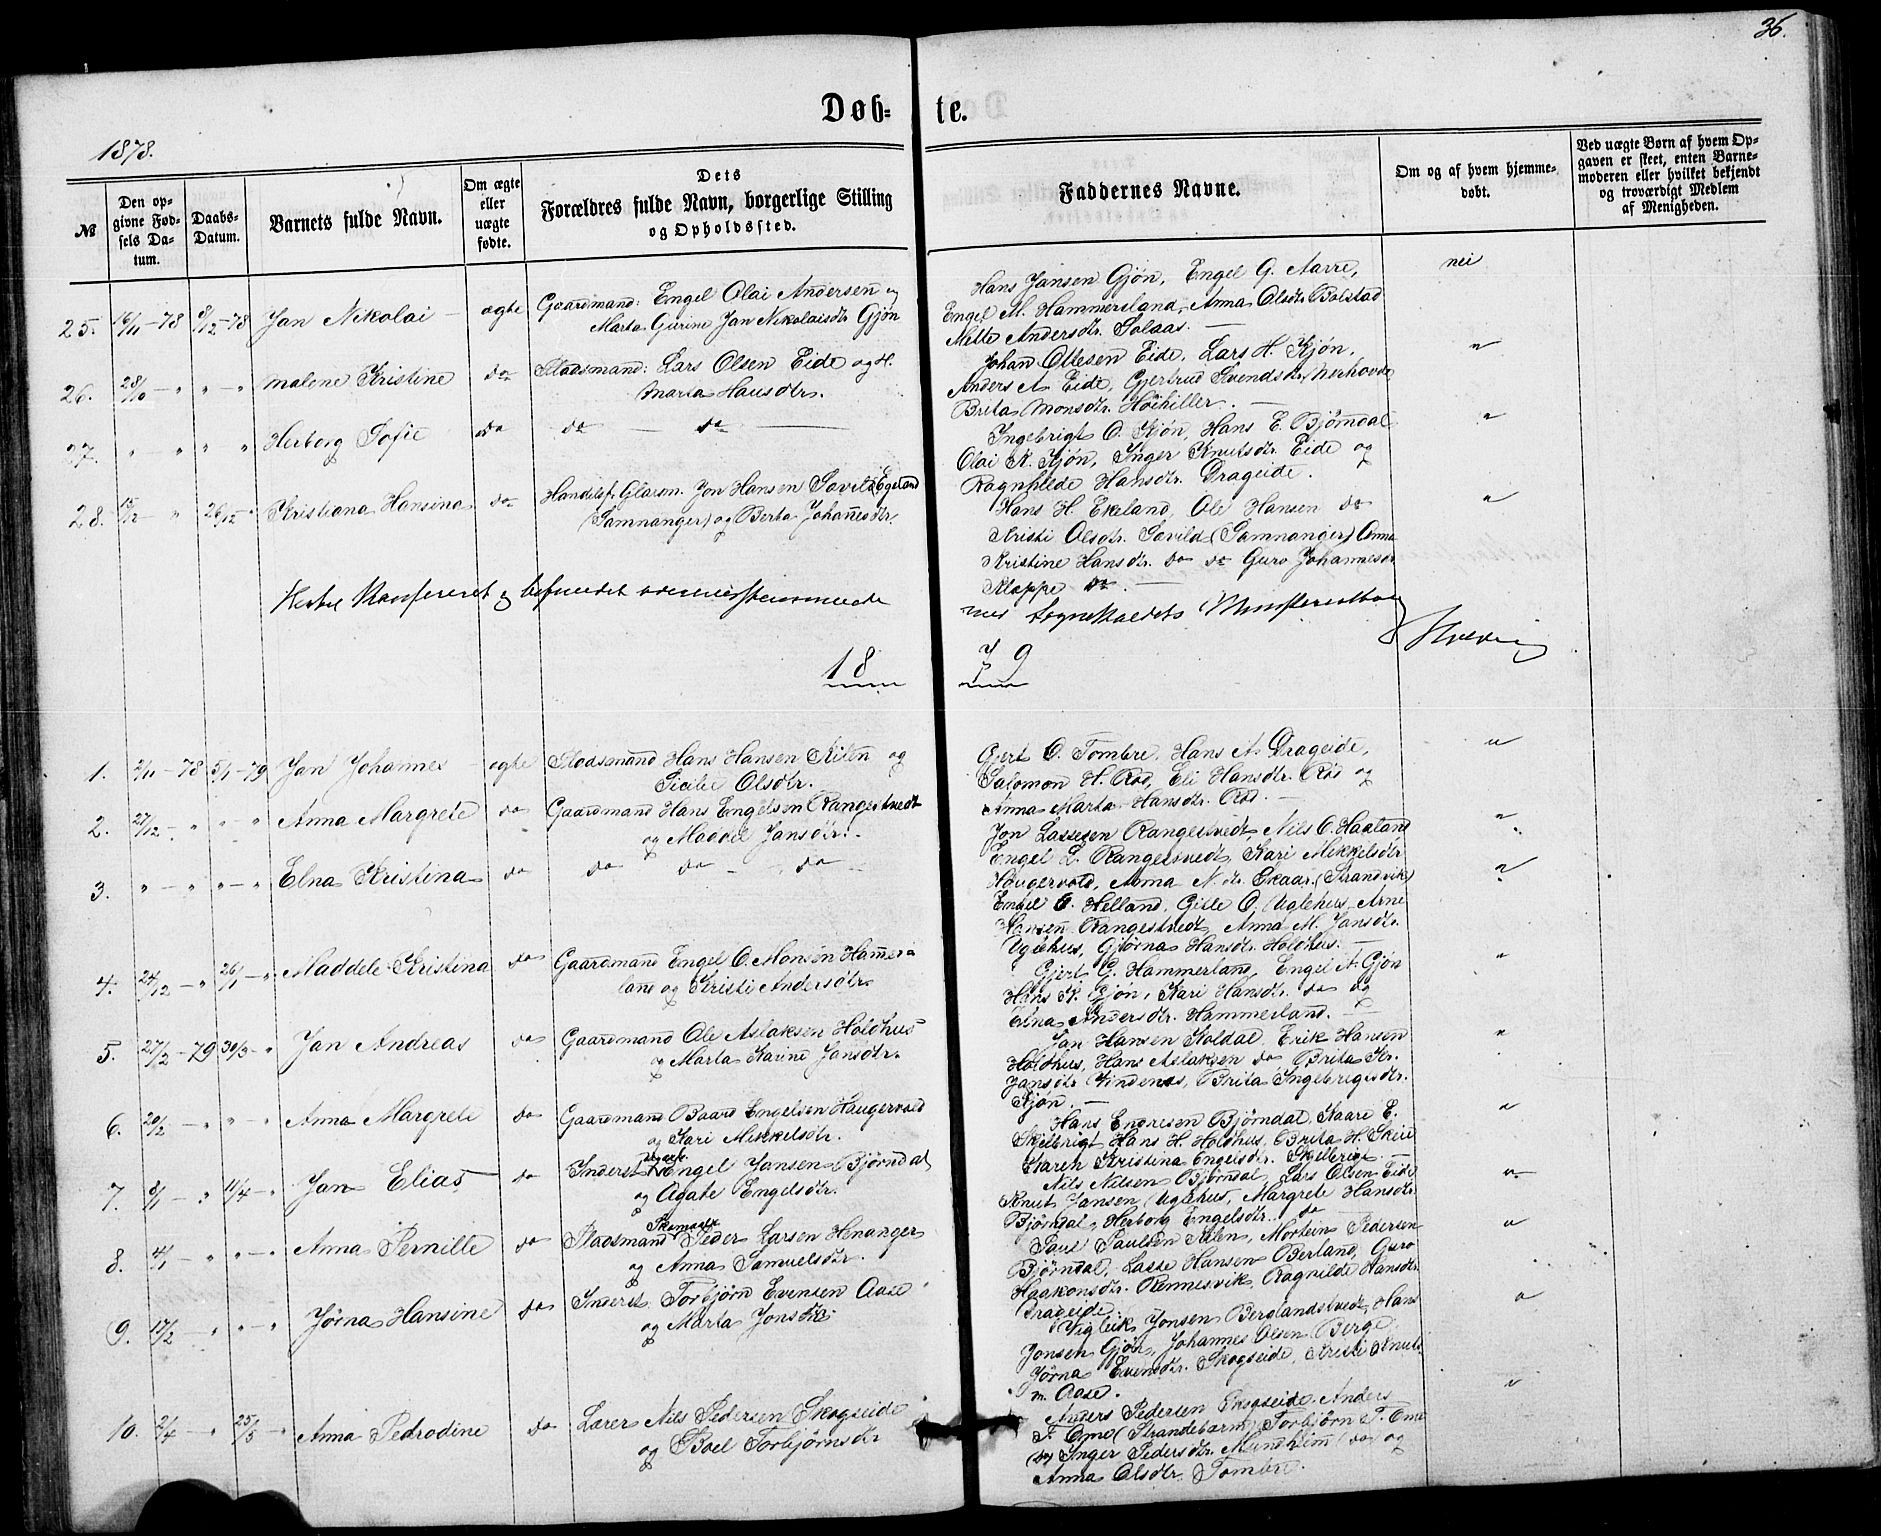 36.
Døb-te.
1878.
№
Den opgivne Fødsels Datum.
Daabs-Datum.
Barnets fulde Navn.
Om ægte eller uægte fødte.
Dets Forældres fulde Navn, borgerlige Stilling og Opholdssted.
Faddernes Navne.
Om og af hvem hjemmedøbt.
Ved uægte Børn af hvem Opgaven er skeet, enten Barnemoderen eller hvilket bekjendt og troværdigt Medlem af Menigheden.
25. 16/11-78 8/12-78 Jan Nikolai - ægte Gaardmand: Engel Olai Andersen og
Marta Gurine Jan Nikolaisdtr Gjøn
Hans Jansen Gjøn, Engel G. Aarre, nei
Engel M. Hammersland, Anna Olsdtr Bolstad
Mette Andersdtr. Solaas. -
26. 28/10 - " " - " Malene Kristine do Stadsmand: Lars Olsen Eide og H.
Marta Hansdtr.
Johan Olesen Eide, Lars H. Kjøn, "
Anders A Eide, Gjertrud Svendsdtr
Brita Monsdtr. -
27. " - " " " Herborg Sofie do do - do
Ingebrigt O. Kjøn, Hans E. Bjørndal "
Olai N. Kjøn, Inger Knutsdtr. Eide og
Ragnhilde Hansdtr. Drageide.
28. 15/12 - " 26/12 - " Kristiana Hansina do Jon Hansen
(Samnanger) og Berta Johannesdtr.
Hans H. Ekeland, Ole Hansen do "
Kristi Olsdtr. Søvild (Samnanger) Anna
Kristine Hansdtr. do do Guro Johannesdtr
Kloppe do. -
Konfereret og befundet overensstemmende
med Sognekaldets Ministerialbog
18 79
1. 2/11-78 5/1-79 Jan Johannes - ægte Stadsmand Hans Hansen Kilen og
Sicilie Olsdtr.
Gjert O. Tombre, Hans A. Drageide, "
Salomon H. Rød, Eli Hansdtr. Rød og
Anna Marta Hansdtr. Rød. -
2. 27/12 - " " - " Anna Margrete do Gaardmand Hans Engelsen Rangestvedt
og Maddel Jansdtr.
Jon Lassesen Rangestvedt, Nils O. Haaland "
Engel L. Rangestvedt, Kari Mikkelsdtr
Hougervold, Anna N. dtr. Skaar (Strandvik)
3. " - " " - " Elna Kristina do do do - do "
Engel O. Helland, Gisle O. Uglehus, Arne
Hansen Rangestvedt, Anna M. Jansdtr.
Uglehus, Gjørna Hansdtr. Holdhus. -
4. 24/12 - " 26/1 - " Maddele Kristina do Gaardmand Engel O. Monsen Hammers-
land og Kristi Andersdtr.
Gjert G. Hammerland, Engel A. Gjøn "
Hans K. Gjøn, Kari Hansdtr. do og
Elna Andersdtr. Hammerland. -
5. 27/2 - 79 30/3 - " Jan Andreas do Gaardmand Ole Aslaksen Holdhus
og Marta Karine Jansdtr.
Jan Hansen Koldal, Erik Hansen "
Holdhus, Hans Aslaksen do Brita Kr.
Jansdtr Vindenes, Brita Ingebrigtsdtr.
Kjøn. -
6. 20/2 - " " - " Anna Margrete do Gaardmand Baard Engelsen Haugervold
og Kari Mikkelsdtr.
Hans Endresen Bjørndal, Kaare E. "
Skeibrigt Hans H. Holdhus, Brita H. Skeie
Karen Kristina Engelsdtr. Skeibrigt. -
7. 8/1 - " 11/4 - " Jan Elias do Inderst Engel Jansen Bjørndal
og Agate Engelsdtr.
Nils Nilsen Bjørndal, Lars Olsen Eide "
Knut Jansen Uglehus, Margrete Hansdtr
Bjørndal, Herborg Engelsdtr. do -
8. 4/1 - " " - " Anna Pernille do Stadsmand Skomager Peder Larsen Henanger
og Anna Samuelsdtr.
Paul Paulsen Kilen, Mortein Pedersen "
Bjørndal, Lasse Hansen Berland, Guro
Haakonsdtr. Rennesvik, Ragnilde Hansdtr.
Drageide.
9. 12/2 - " " - " Jørna Hansine do Inderst Torbjørn Evensen Aase
og Marta Jonsdtr.
Vigleik Jonsen Berlandstvedt, Hans "
Jonsen Gjøn, Johannes Olsen Berge
Jørna Evensdtr. Skogseide, Kristi Knuts.
m. Aase.
10. 2/4 - " 25/5 - " Anna Pedrodine do Lærer Nils Pedersen Skogseide
og Boel Torbjørnsdtr
Anders Pedersen Skogseide, Anders "
T. Ome (Strandebarm) Torbjørn T. Ome
(do) Inger Pedersdtr. Mundheim (do) og
Anna Olsdtr. Tombre.